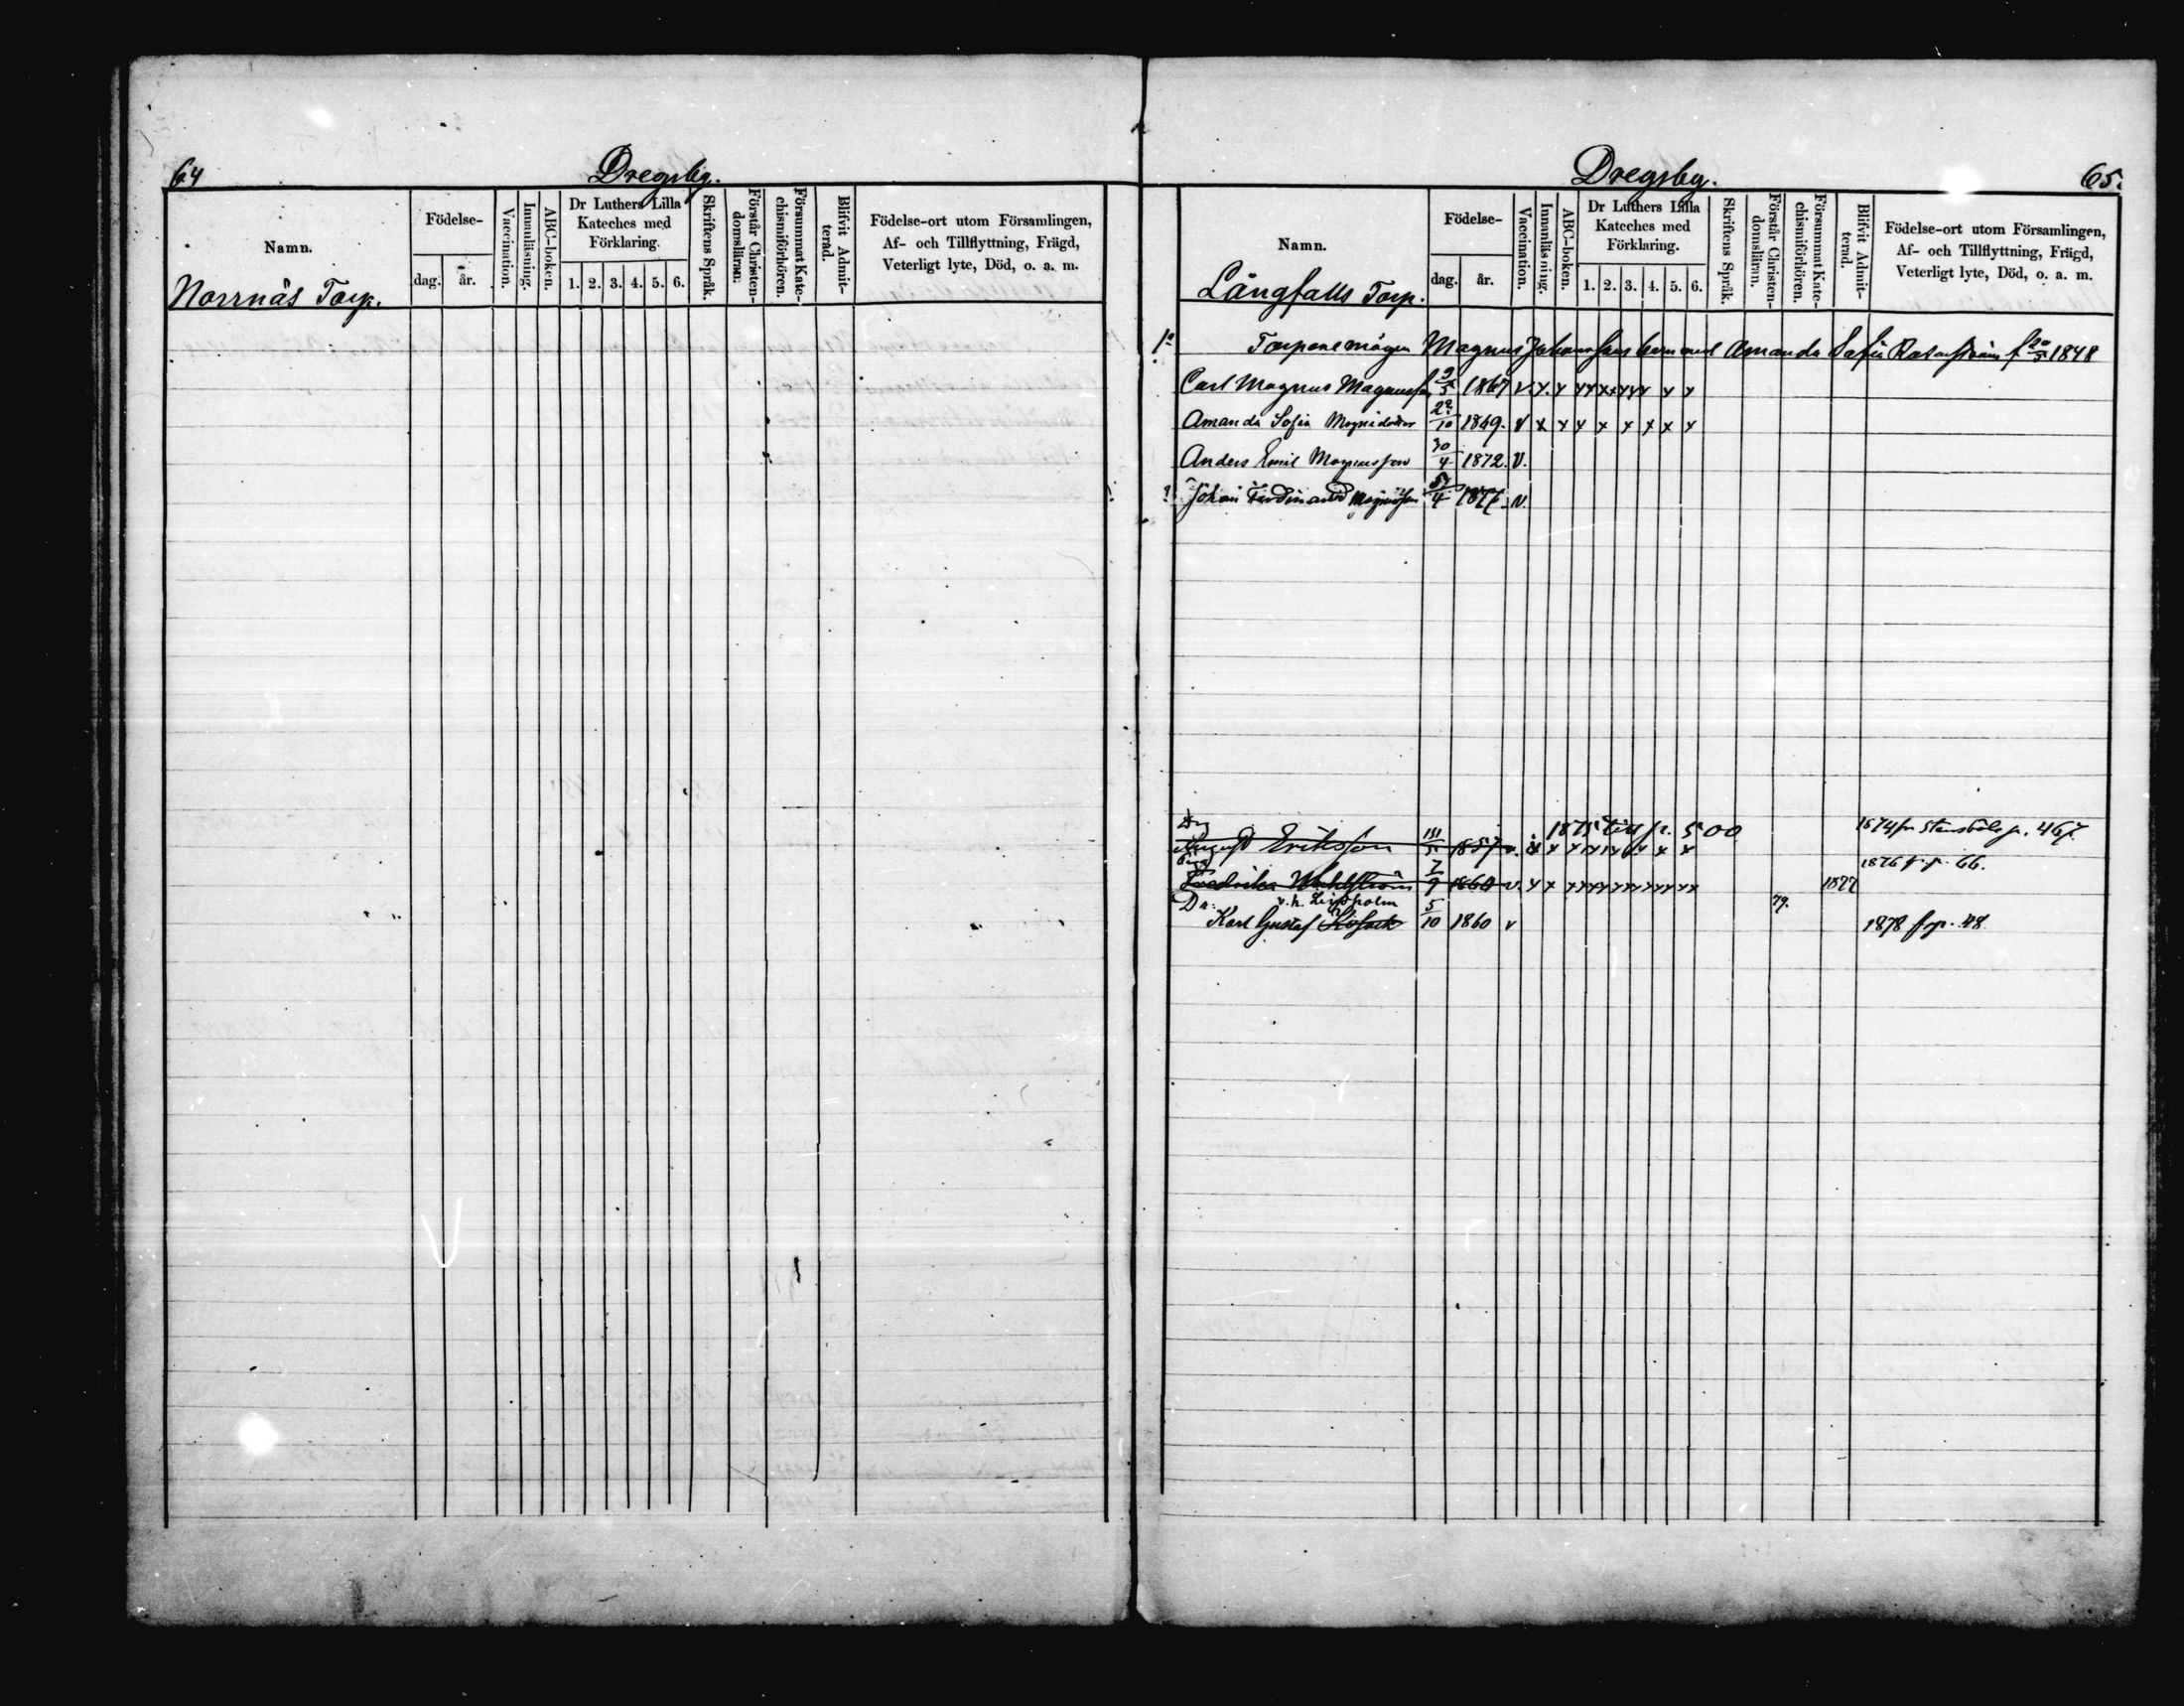 64
Dregsby.
Namn.
Födelse-
dag. år.
Vaccination.
Innanläsning.
ABC-boken.
Dr Luthers Lilla
Kateches med
Förklaring.
1. 2. 3. 4. 5. 6.
Skriftens Språk.
Förstår Christen-
domsläran.
Försummat Kate-
chismiförhören.
Blifvit Admit-
terad.
Födelse-ort utom Församlingen,
Af- och Tillflyttning, Frägd,
Veterligt lyte, Död, o. a. m.
Norrnäs Torp.
Dregsby.
65.
Namn.
Födelse-
dag. år.
Vaccination.
Innanläsning.
ABC-boken.
Dr Luthers Lilla
Kateches med
Förklaring.
1. 2. 3. 4. 5. 6.
Skriftens Språk.
Förstår Christen-
domsläran.
Försummat Kate-
chismiförhören.
Blifvit Admit-
terad.
Födelse-ort utom Församlingen,
Af- och Tillflyttning, Frägd,
Veterligt lyte, Död, o. a. m.
Långfalls Torp.
Magnus Johanssons barn med Amanda Sofia f 20/5 1848
Carl Magnus Magnusson 2/5 1867 v. x. x x x x x x x x x x
Amanda Sofia Magnidotter 22/10 1869. v x x x x x x x x
Anders Emil Magnusson 30/4 1872. v.
Johan Ferdinand Magnusson 4 1877. v.
1875 till p. 500 1874 fr Stensböle p. 467.
August Eriksson 1857 v. x x x x x x x x
1876 fr. p. 66.
Fredrika Wahlström 7/9 1860 v. x x x x x x x x x x x 1877
Dr. v. h. Lindholm 79.
Karl Gustaf 5/10 1860 v 1878 fr p. 48